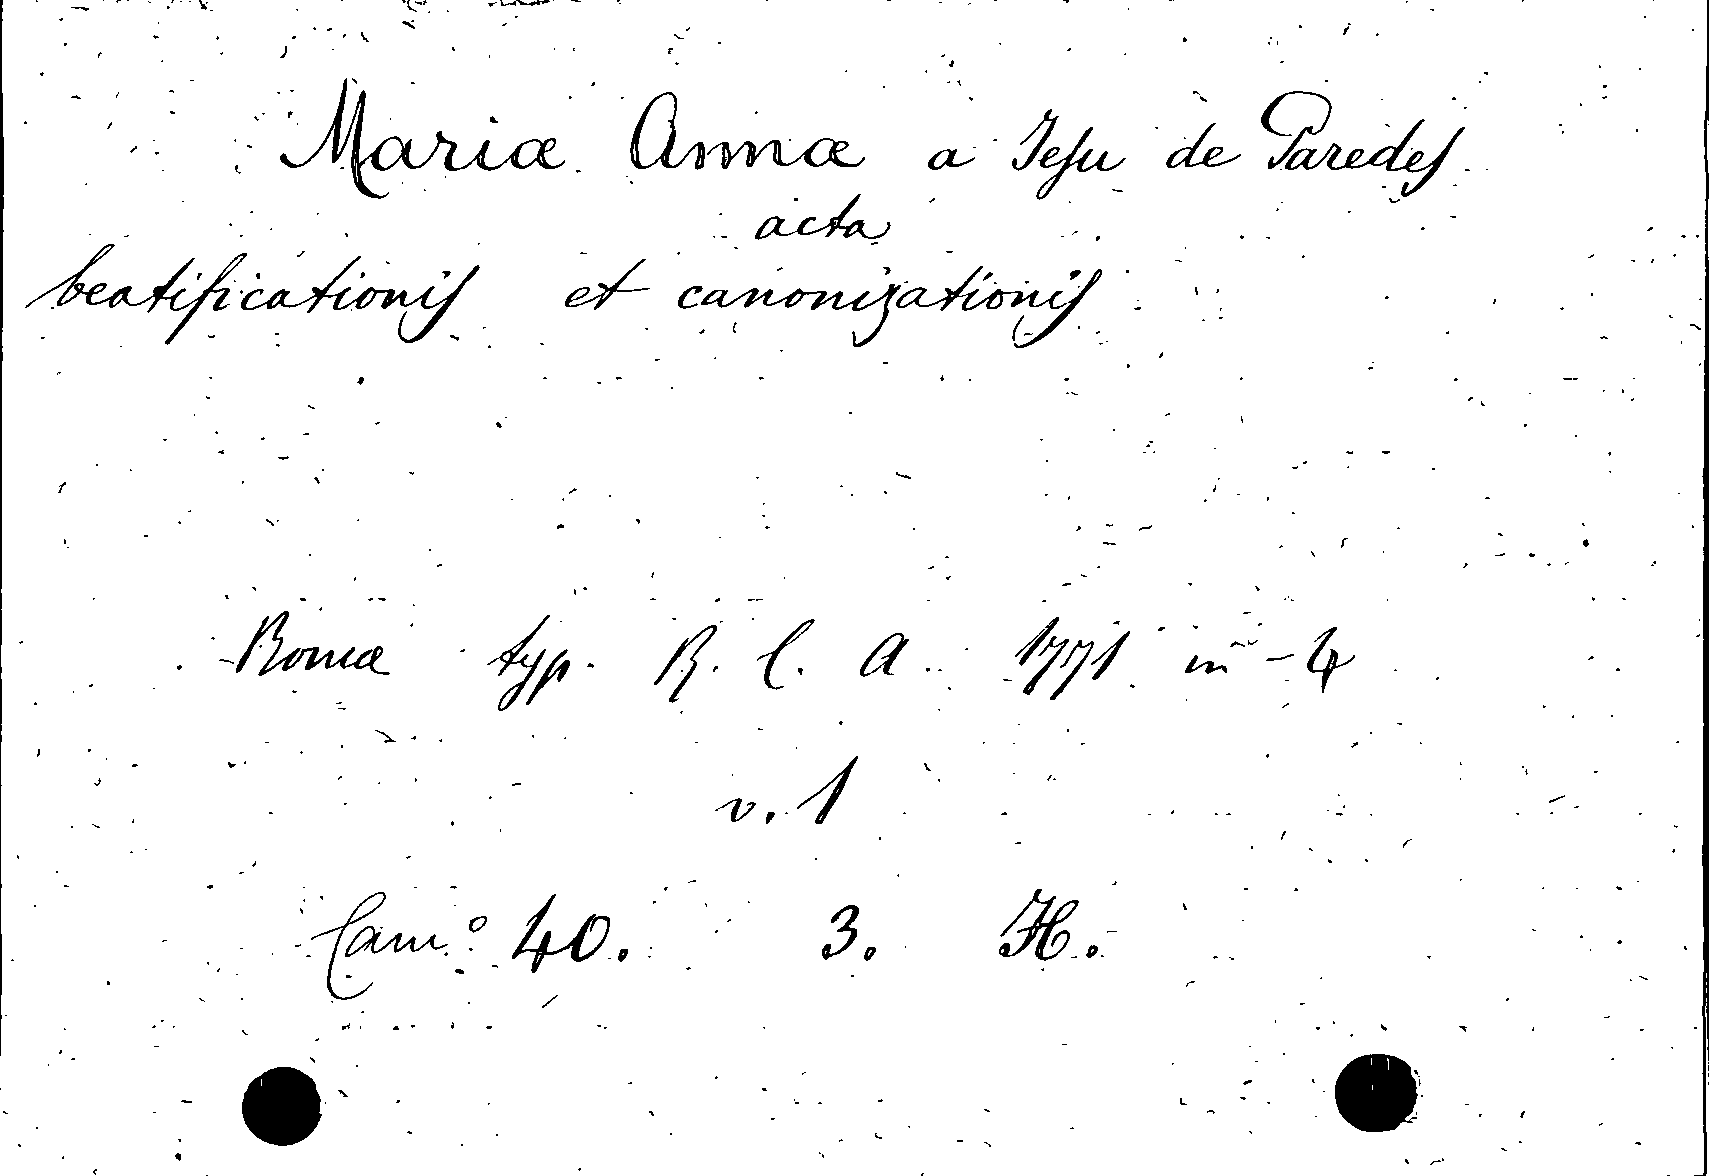 Mariæ Annæ a Jesu de Paredes
acta
beatificationis et canonizationis
Romæ typ. R. C. A. 1771 in-4
v. 1
Cam.º 40. 3. H.